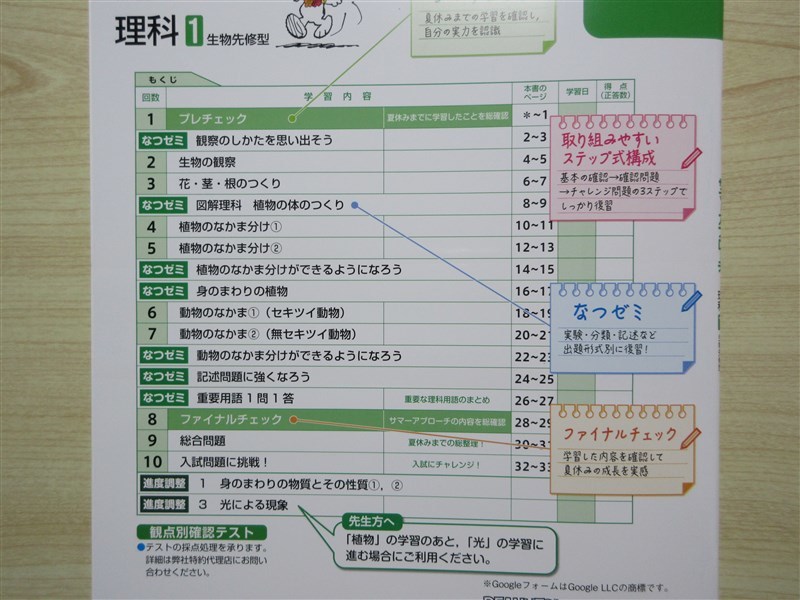 理科 1 生物先修型
夏休みまでの学習を確認し、
自分の実力を認識
もくじ
回数 学習内容 本書のページ 学習日 得点(正答数)
1 プレチェック 夏休みまでに学習したことを総確認 *~1
なつゼミ 観察のしかたを思い出そう 2~3
2 生物の観察 4~5
3 花・茎・根のつくり 6~7
なつゼミ 図解理科 植物の体のつくり 8~9
4 植物のなかま分け① 10~11
5 植物のなかま分け② 12~13
なつゼミ 植物のなかま分けができるようになろう 14~15
なつゼミ 身のまわりの植物 16~17
6 動物のなかま①(セキツイ動物) 18~19
7 動物のなかま②(無セキツイ動物) 20~21
なつゼミ 動物のなかま分けができるようになろう 22~23
なつゼミ 記述問題に強くなろう 24~25
なつゼミ 重要用語1問1答 重要な理科用語のまとめ 26~27
8 ファイナルチェック サマーアプローチの内容を総確認 28~29
9 総合問題 夏休みまでの総整理! 30~31
10 入試問題に挑戦! 入試にチャレンジ! 32~33
進度調整 1 身のまわりの物質とその性質①,②
進度調整 3 光による現象
取り組みやすい
ステップ式構成
基本の確認→確認問題
→チャレンジ問題の3ステップで
しっかり復習
なつゼミ
実験・分類・記述など
出題形式別に復習!
ファイナルチェック
学習した内容を確認して
夏休みの成長を実感
観点別確認テスト
●テストの採点処理を承ります。
詳細は弊社特約代理店にお問い
合わせください。
先生方へ
「植物」の学習のあと,「光」の学習に
進む場合にご利用ください。
※GoogleフォームはGoogle LLCの商標です。